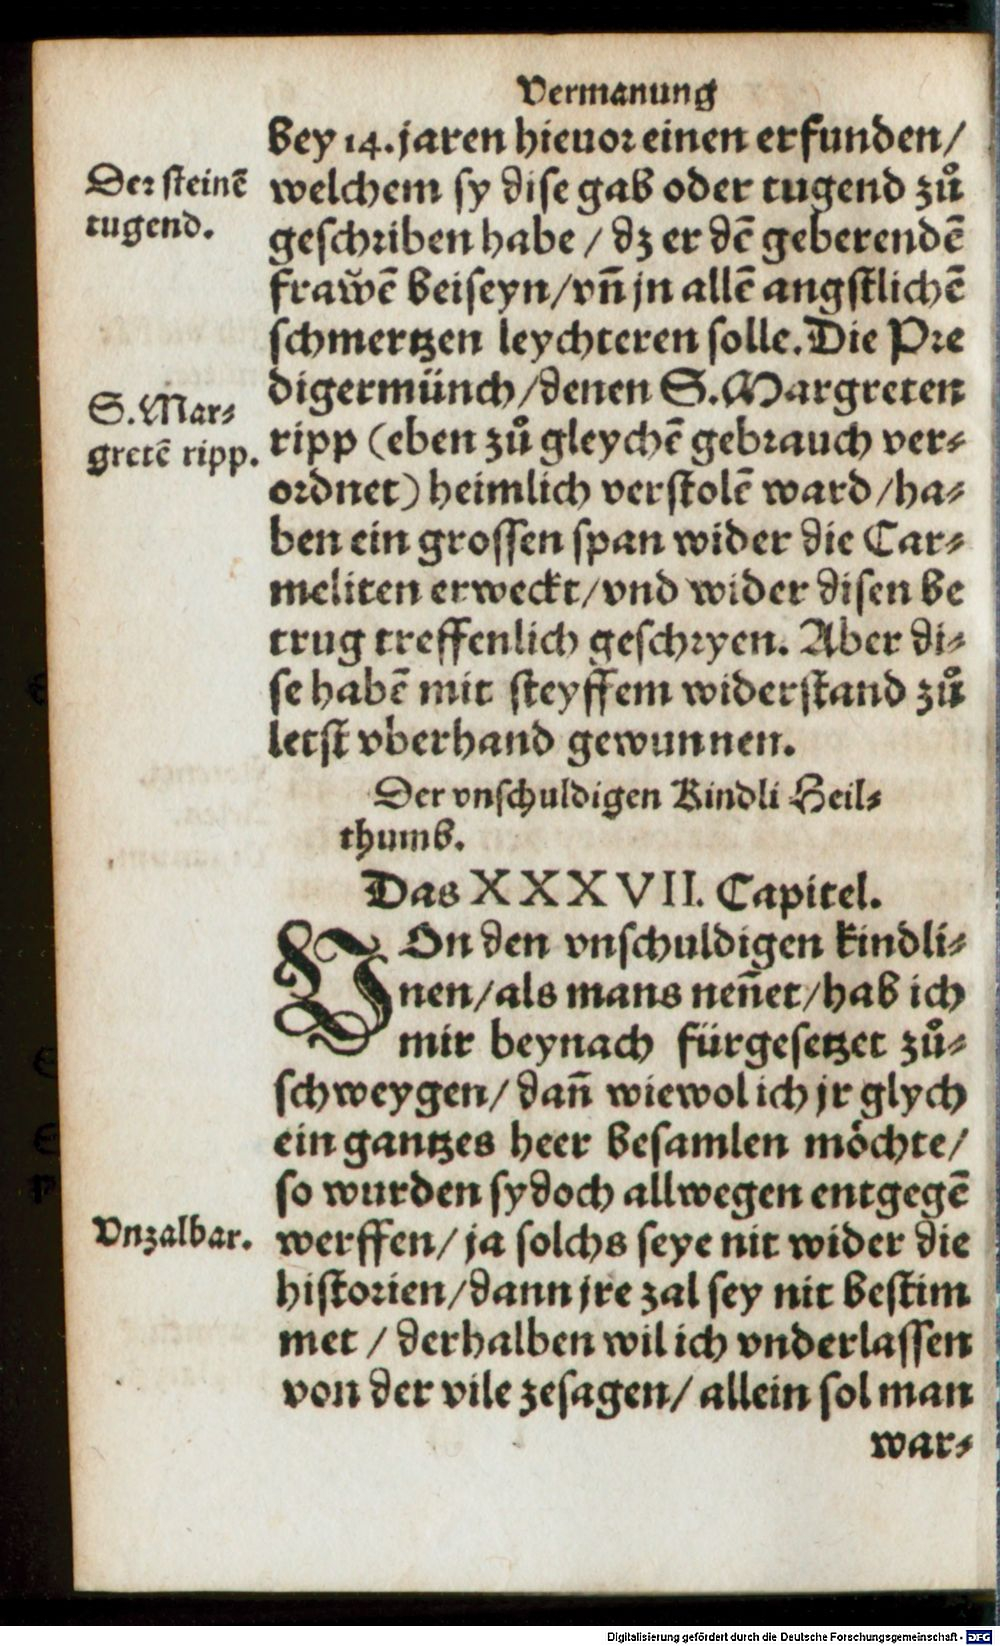 Vermanung
bey 14. jaren hieuor einen erfunden/
Der steinē
tugend.
welchem sy dise gab oder tugend zů
geschriben habe / dz er dē geberendē
frauwē beiseyn/vn̄ jn allē angstlichē
schmertzen leychteren solle. Die Pre
digermünch/denen S. Margreten
S. Mar⸗
gretē ripp.
ripp (eben zů gleychē gebrauch ver⸗
ordnet) heimlich verstolē ward/ha⸗
ben ein grossen span wider die Car⸗
meliten erweckt/vnd wider disen be
trug treffenlich geschryen. Aber di⸗
se habē mit steyffem widerstand zů
letst vberhand gewunnen.
Der vnschuldigen Kindli Heil⸗
thumb.
Das XXXVII. Capitel.
VOn den vnschuldigen kindli⸗
nen/als mans nen̄et/hab ich
mir beynach fürgesetzet zů⸗
schweygen/ dan̄ wiewol ich jr glych
ein gantzes heer besamlen möchte/
so wurden sy doch allwegen entgegē
Vnzalbar.
werffen/ ja solchs seye nit wider die
historien/dann jre zal sey nit bestim
met / derhalben wil ich vnderlassen
von der vile zesagen/ allein sol man
war⸗
Digitalisierung gefördert durch die Deutsche Forschungsgemeinschaft - DFG